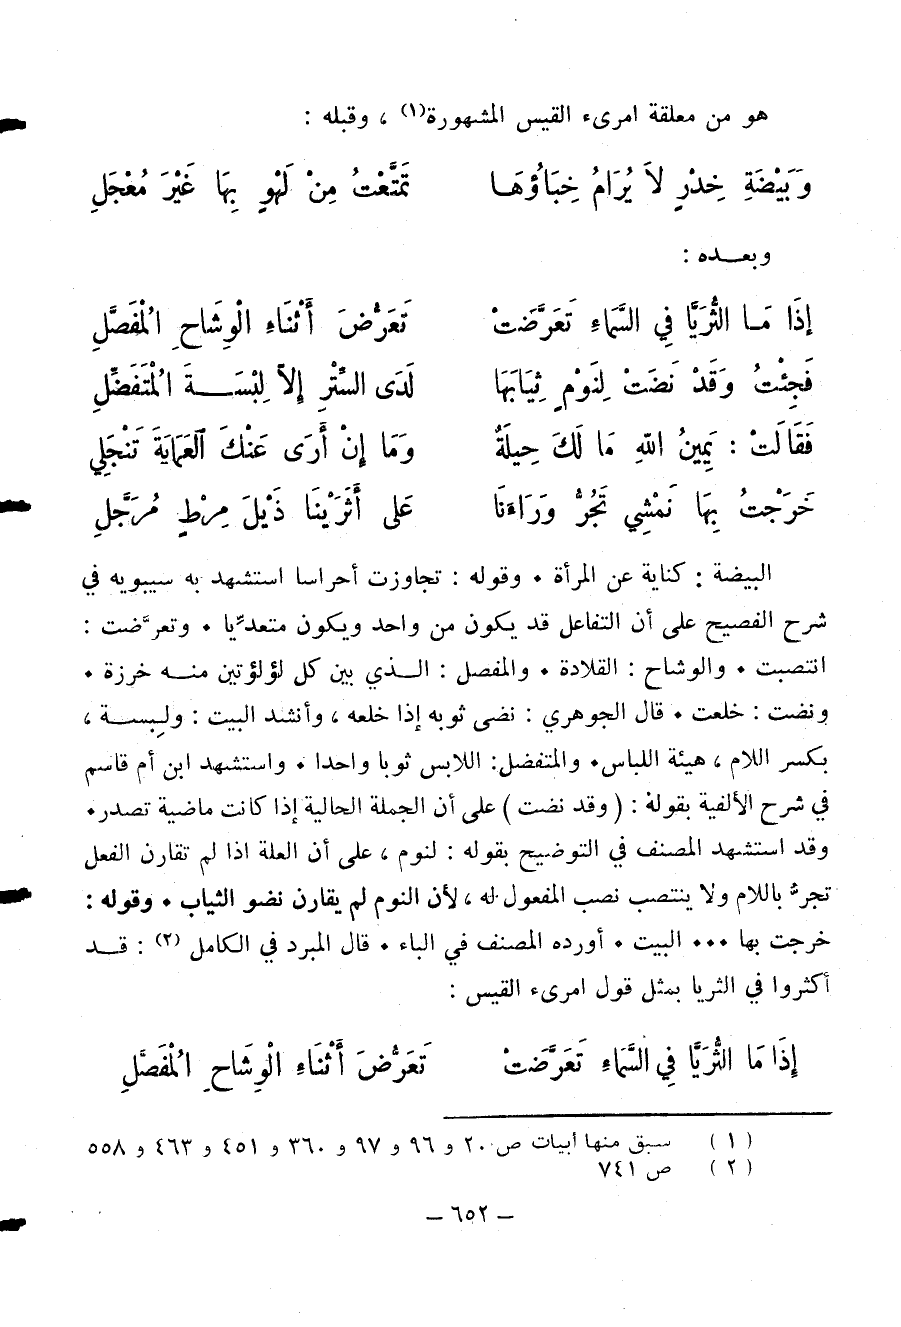 هو من معلقة امرىء القيس المشهورة(١) ، وقبله :
وَبَيْضَةِ خِدْرٍ لاَ يُرَامُ خِبَاؤُهَا تَمَتَّعْتُ مِنْ لَهْوٍ بِهَا غَيْرَ مُعْجَلِ
وبعـــده :
إِذَا مَـا الثُّرَيَّا فِي السَّمَاءِ تَعَرَّضَتْ تَعَرُّضَ أَثْنَاءِ الْوِشَاحِ الْمُفَصَّلِ
فَجِئْتُ وَقَدْ نَضَتْ لِنَوْمٍ ثِيَابَهَا لَدَى السِّتْرِ إِلاَّ لِبْسَـــةَ الْمُتَفَضِّلِ
فَقَالَتْ : يَمِينُ اللهِ مَا لَكَ حِيلَةٌ وَمَا إِنْ أَرَى عَنْكَ العَمَايَةَ تَنْجَلِي
خَرَجْتُ بِهَا نَمْشِي تَجُرُّ وَرَاءَنَا عَلى أَثَرَيْنَا ذَيْلَ مِرْطٍ مُرَجَّلِ
البيضة : كناية عن المرأة • وقوله : تجاوزت أحراسا استشهد به سيبويه في
شرح الفصيح على أن التفاعل قد يكون من واحد ويكون متعدّيا • وتعرّضت :
انتصبت • والوشاح : القلادة • والمفصل : الــذي بين كل لؤلؤتين منــه خرزة •
ونضت : خلعت • قال الجوهري : نضى ثوبه إذا خلعه ، وأنشد البيت : ولِبســة ،
بكسر اللام ، هيئة اللباس• والمتفضل: اللابس ثوبا واحدا • واستشهد ابن أم قاسم
في شرح الألفية بقوله : ( وقد نضت ) على أن الجملة الحالية إذا كانت ماضية تصدر•
وقد استشهد المصنف في التوضيح بقوله : لنوم ، على أن العلة اذا لم تقارن الفعل
تجرّ باللام ولا ينتصب نصب المفعول له ، لأن النوم لم يقارن نضو الثياب • وقوله :
خرجت بها ••• البيت • أورده المصنف في الباء • قال المبرد في الكامل (٢) : قــد
أكثروا في الثريا بمثل قول امرىء القيس :
إِذَا مَا الثُّرَيَّا فِي السَّمَاءِ تَعَرَّضَتْ تَعَرُّضَ أَثْنَاءِ الْوِشَاحِ الْمُفَصَّلِ
( ١ ) سبق منها أبيات ص ٢٠ و ٩٦ و ٩٧ و ٣٦٠ و ٤٥١ و ٤٦٣ و ٥٥٨
( ٢ ) ص ٧٤١
– ٦٥٢ –